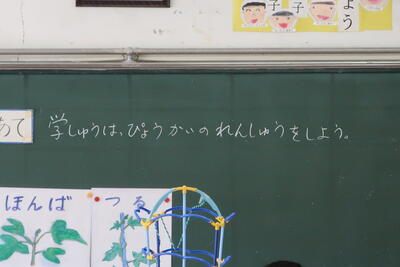 子 子 よう
あて
学しゅうは、ぴょうかいのれんしゅうをしよう。
ほんば
つる